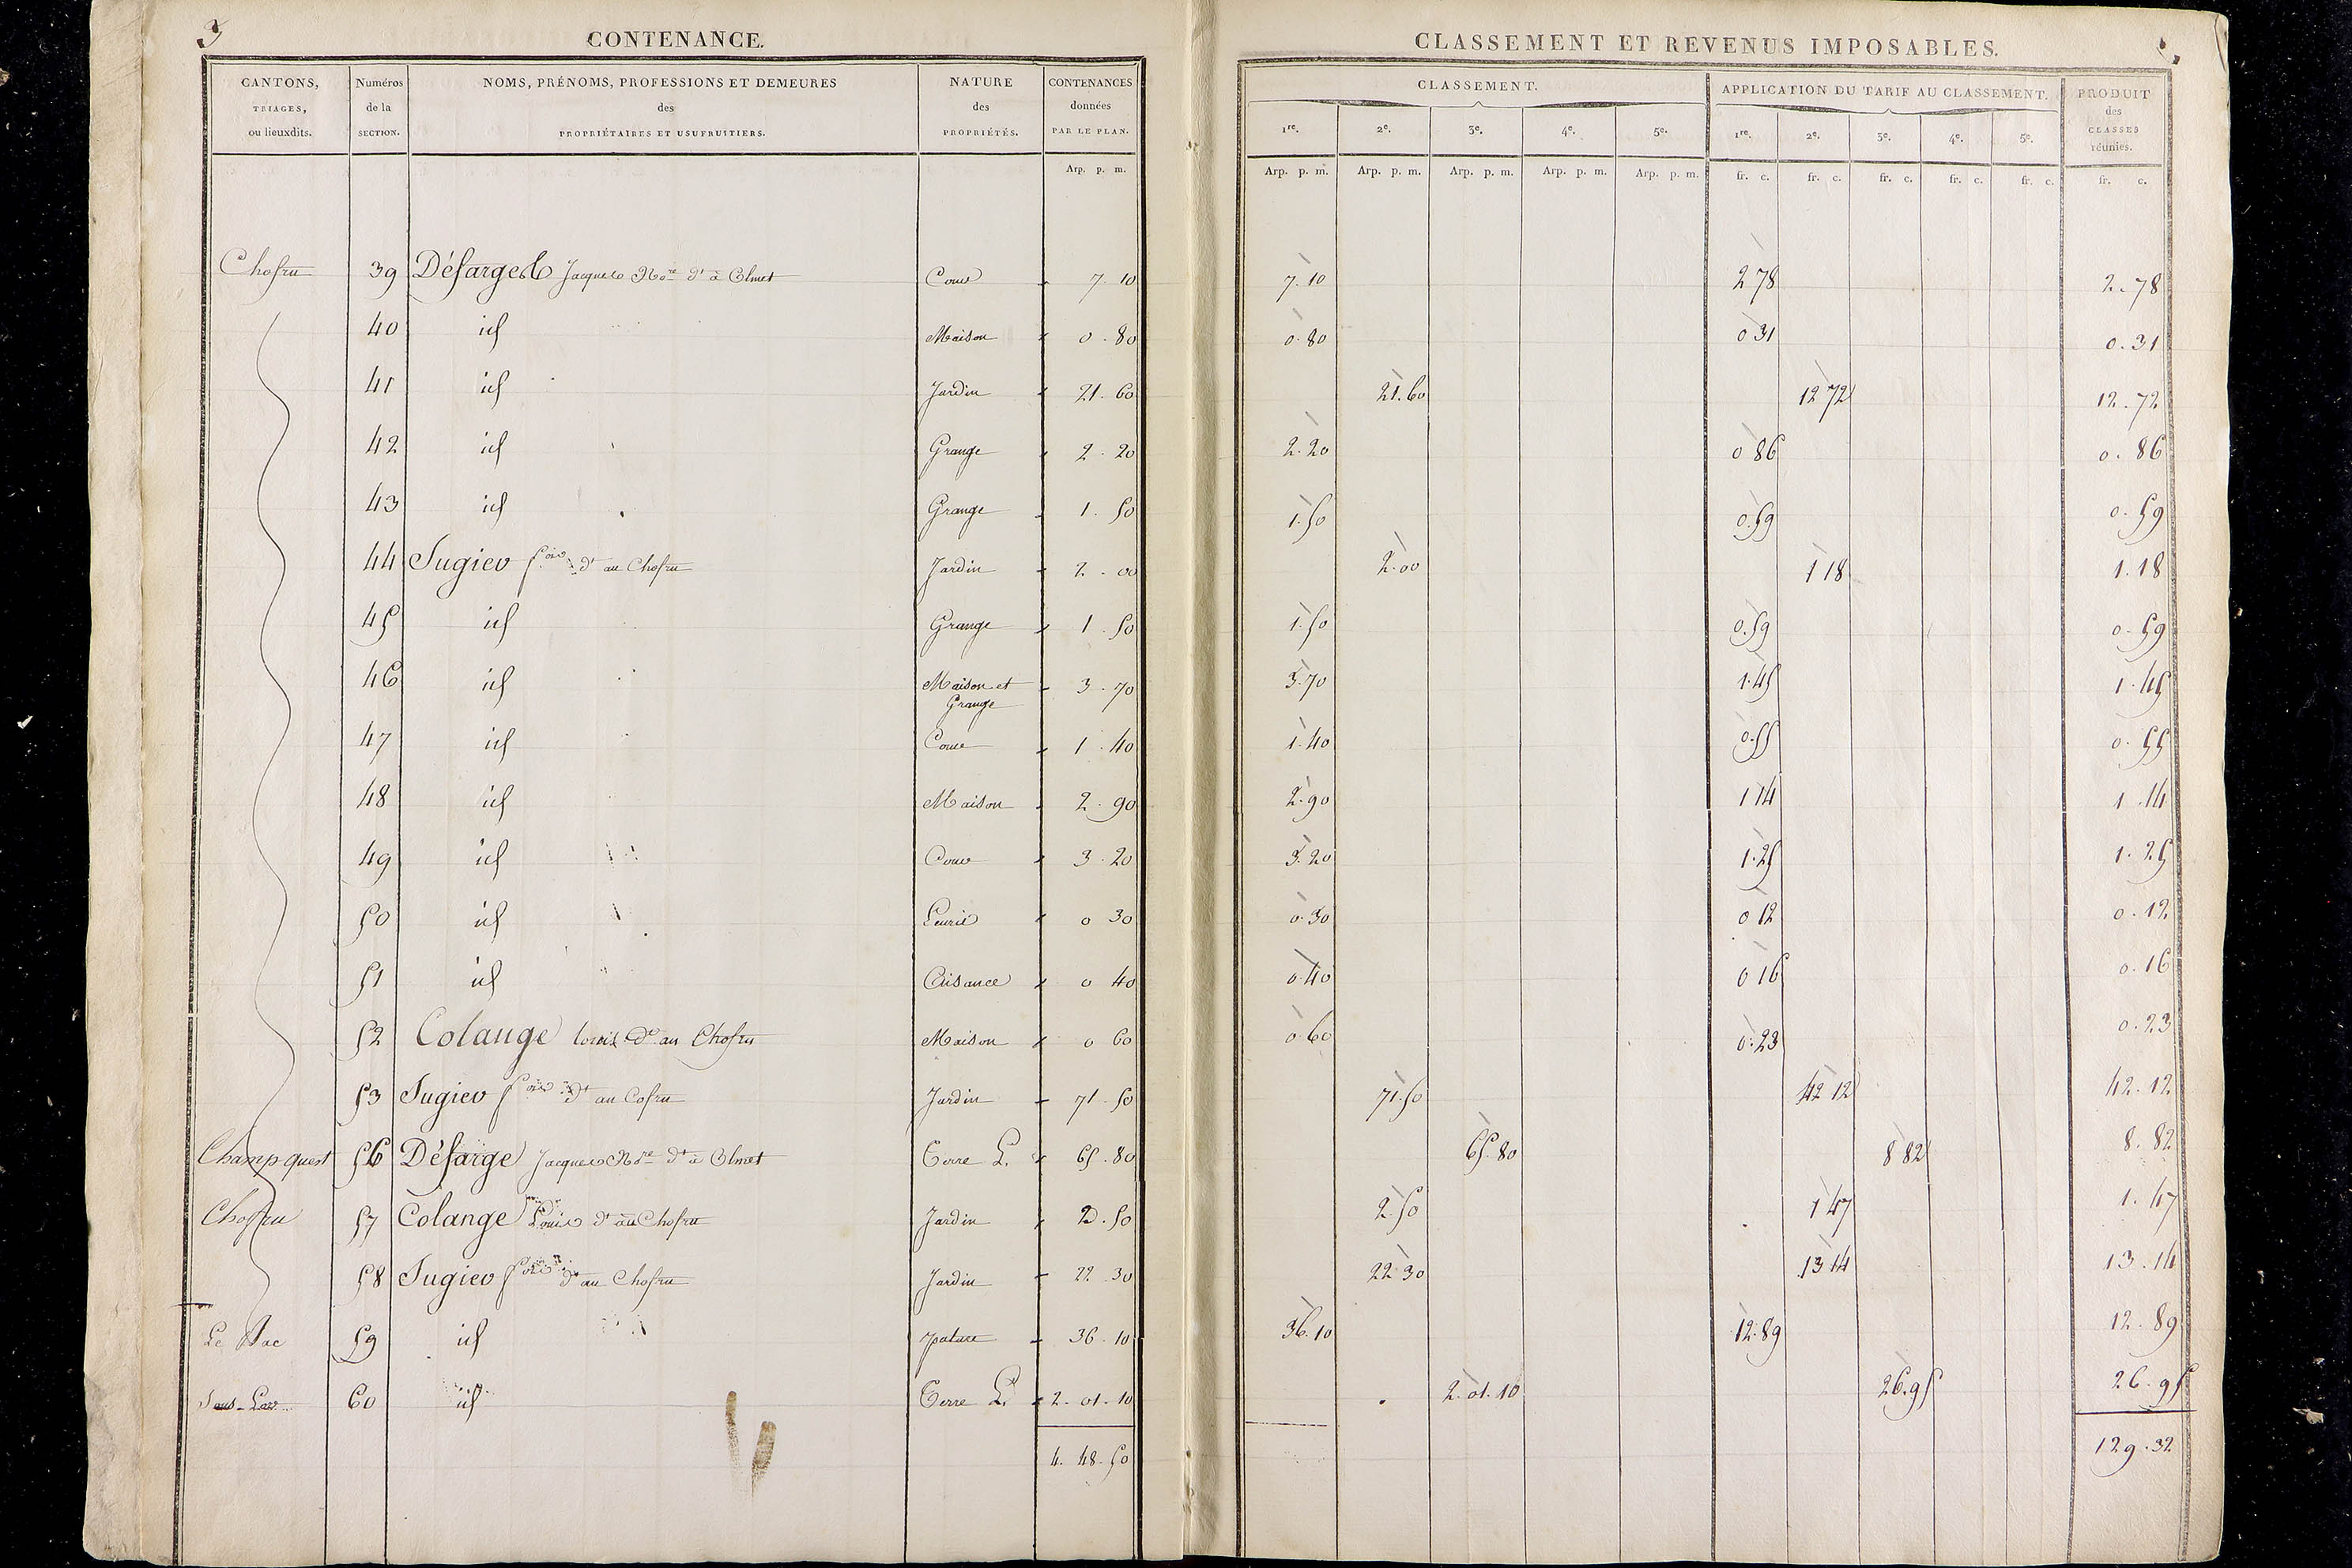 3
CONTENANCE.
CLASSEMENT ET REVENUS IMPOSABLES.
CANTONS, TRIAGES, ou lieuxdits. Numéros de la SECTION. NOMS, PRÉNOMS, PROFESSIONS ET DEMEURES des PROPRIÉTAIRES ET USUFRUITIERS. NATURE des PROPRIÉTÉS. CONTENANCES données PAR LE PLAN. CLASSEMENT. APPLICATION DU TARIF AU CLASSEMENT. PRODUIT des CLASSES réunies.
1re. 2e. 3e. 4e. 5e. 1re. 2e. 3e. 4e. 5e.
Arp. p. m. Arp. p. m. Arp. p. m. Arp. p. m. Arp. p. m. Arp. p. m. fr. c. fr. c. fr. c. fr. c. fr. c. fr. c.
Chofru 39 Défarges Jacques Nore dt à Olmet Cour 7. 10 7. 10 2 78 2. 78
40 id Maison 0. 80 0. 80 0 31 0. 31
41 id Jardin 21. 60 21. 60 12 72 12. 72
42 id Grange 2. 20 2. 20 0 86 0. 86
43 id Grange 1. 50 1. 50 0. 59 0. 59
44 Sugier dt au Chofru Jardin 2. 00 2. 00 1 18 1. 18
45 id Grange 1. 50 1. 50 0. 59 0. 59
46 id Maison et Grange 3. 70 3. 70 1. 45 1. 45
47 id Cour 1. 40 1. 40 0. 55 0. 55
48 id Maison 2. 90 2. 90 1 14 1. 14
49 id Cour 3. 20 3. 20 1. 25 1. 25
50 id Ecurie 0 30 0. 30 0 12 0. 12
51 id Aisance 0 40 0. 40 0 16 0. 16
52 Colange Louis dt au Chofru Maison 0 60 0. 60 0. 23 0. 23
53 Sugier dt au Cofru Jardin 71. 50 71. 50 42 12 42. 12
Champ-quest 56 Défarge Jacques Nore dt à Olmet Terre L. 65. 80 65. 80 8 82 8. 82
Chofru 57 Colange Louis dt au Chofru Jardin 2. 50 2. 50 1 47 1. 47
58 Sugier dt au Chofru Jardin 22 30 22 30 13 14 13. 14
Le 59 id pature 36. 10 36. 10 12. 89 12. 89
60 id Terre L. 2. 01. 10 2. 01. 10 26. 95 26. 95
4. 48. 50 129. 32